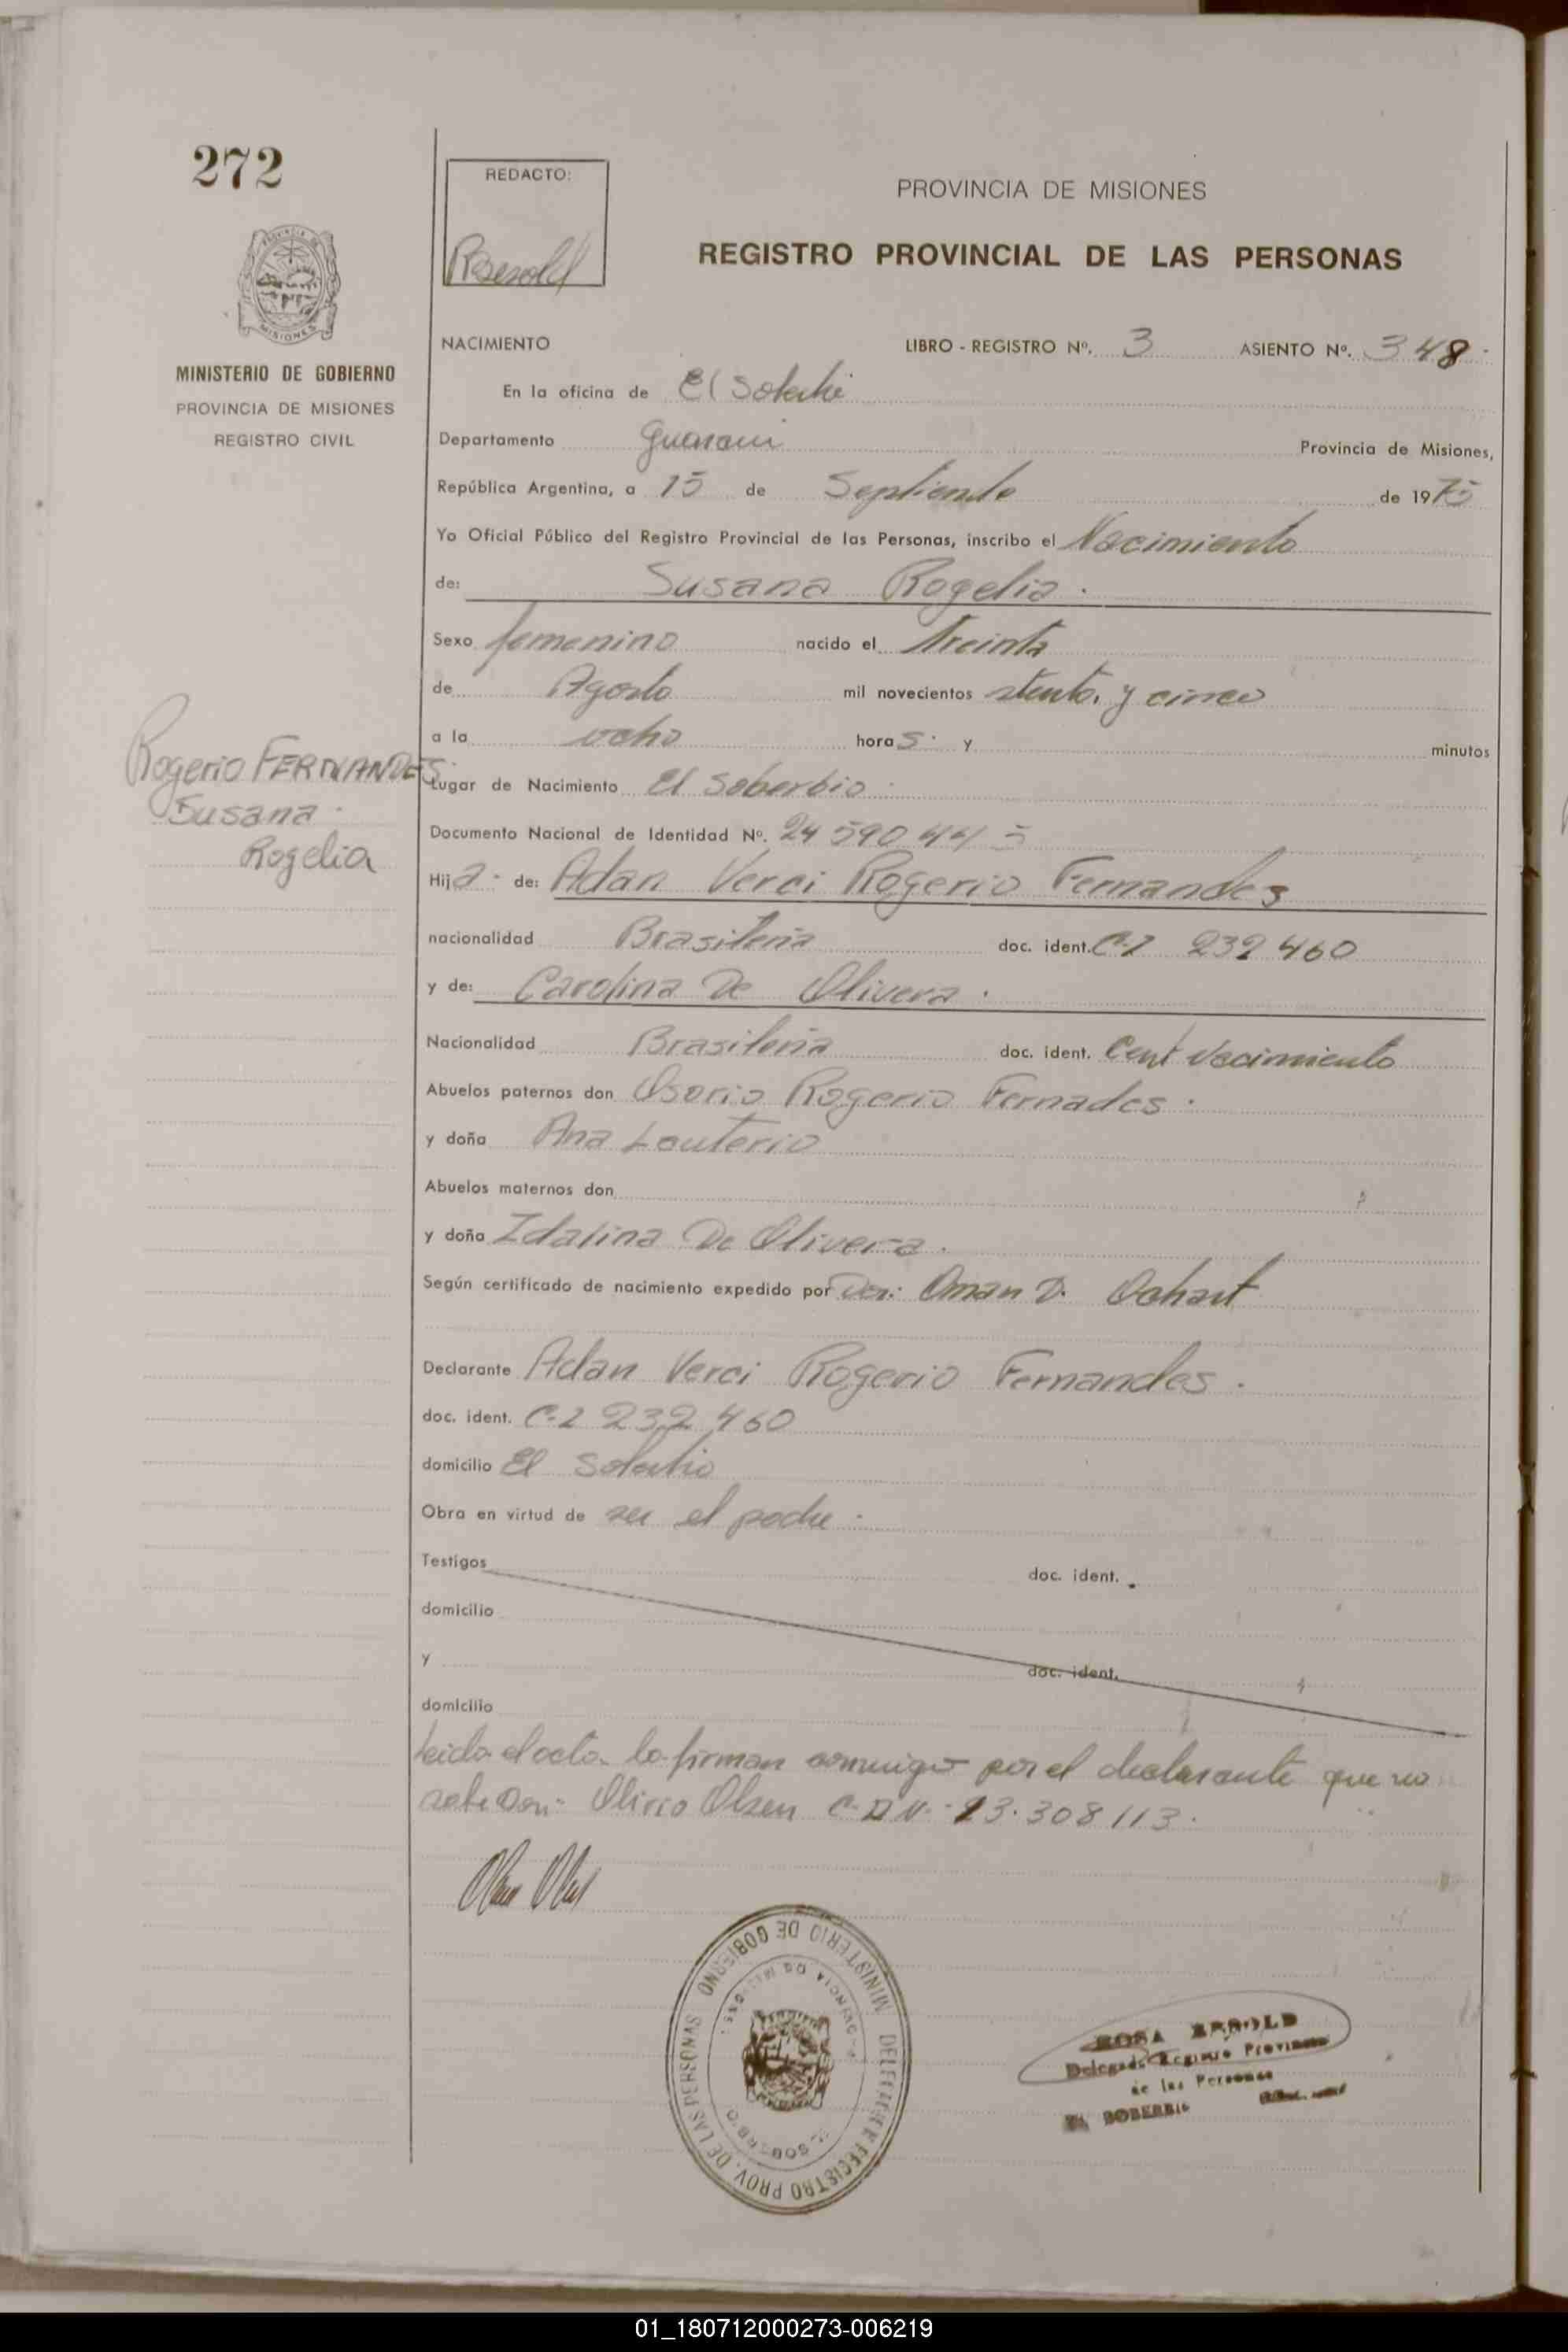 272
REDACTO:
PROVINCIA DE MISIONES
REGISTRO PROVINCIAL DE LAS PERSONAS
MISIONES
MINISTERIO DE GOBIERNO
PROVINCIA DE MISIONES
REGISTRO CIVIL
NACIMIENTO
LIBRO - REGISTRO Nº. 3 ASIENTO Nº. 348
En la oficina de El Soberbio
Departamento Guarani Provincia de Misiones,
República Argentina, a 15 de Septiembre de 1975
Yo Oficial Público del Registro Provincial de las Personas, inscribo el Nacimiento
de: Susana Rogelia.
Sexo femenino nacido el treinta
de Agosto mil novecientos setenta y cinco
a la ocho horas y minutos
Rogerio FERNANDES
Susana
Rogelia
Lugar de Nacimiento El Soberbio
Documento Nacional de Identidad Nº. 24 590 445
Hija de: Adan Verci Rogerio Fernandes
nacionalidad Brasileña doc. ident. C.I 232 460
y de: Carolina De Olivera.
Nacionalidad Brasileña doc. ident. Cert Nacimiento
Abuelos paternos don Osorio Rogerio Fernades.
y doña Ana Lauterio
Abuelos maternos don
y doña Idalina De Olivera.
Según certificado de nacimiento expedido por Dor: Oman D. Ochart
Declarante Adan Verci Rogerio Fernandes.
doc. ident. C.I 232 460
domicilio El Soberbio
Obra en virtud de ser el padre
Testigos doc. ident.
domicilio
y doc. ident.
domicilio
Leida el acta la firman conmigo por el declarante que no
sabe Don: Olirio Olsen C.I.N. 13.308113.
MINISTERIO DE GOBIERNO
PROVINCIA DE MISIONES
EL SOBERBIO
REGISTRO PROV. DE LAS PERSONAS
ROSA
Delegada Registro Provincial
de las Personas
EL SOBERBIO
01_180712000273-006219